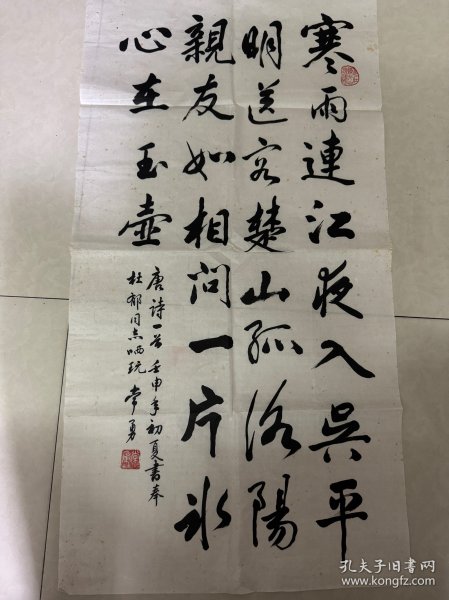 寒雨連江夜入吳平
明送客楚山孤洛陽
親友如相問一片冰
心在玉壺
唐诗一首壬申年初夏書奉
杜郁同志哂玩 常勇
孔夫子旧书网
www.kongfz.com